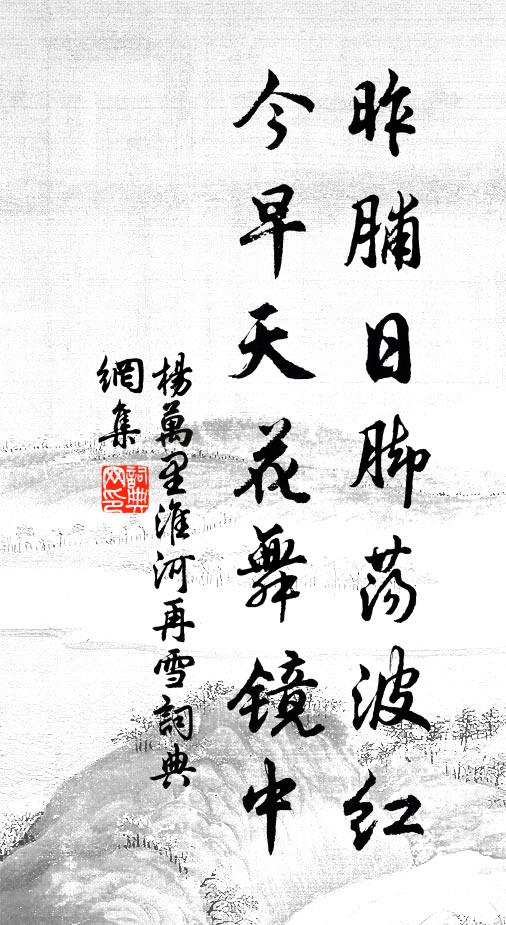 昨脯日脚荡波红
今早天花舞镜中
楊萬里淮河再雪詞典
網集
詞典
网印